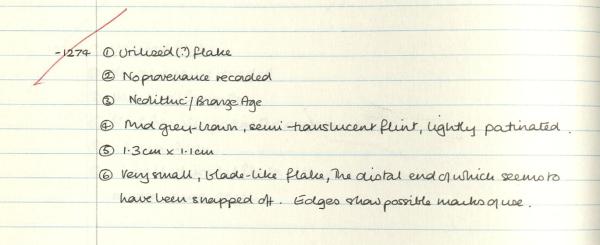 -1274 ① Utilized(?) flake
② No provenance recorded
③ Neolithic/Bronze Age
④ Mid grey-brown, semi-translucent flint, lightly patinated.
⑤ 1.3cm x 1.1cm
⑥ Very small, blade-like flake, The distal end of which seems to
have been snapped off. Edges show possible marks of use.